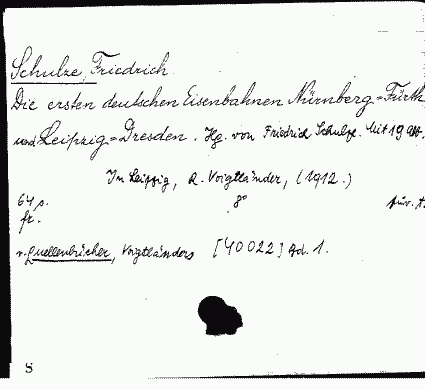 Schulze, Friedrich
Die ersten deutschen Eisenbahnen Nürnberg=Fürth
und Leipzig=Dresden. Hg. von Friedrich Schulze. Mit 19 Abb.
In Leipzig, R. Voigtländer, (1912.)
64 s. 8°
ft.
v. Quellenbücher, Voigtländers [40022] Bd. 1.
S